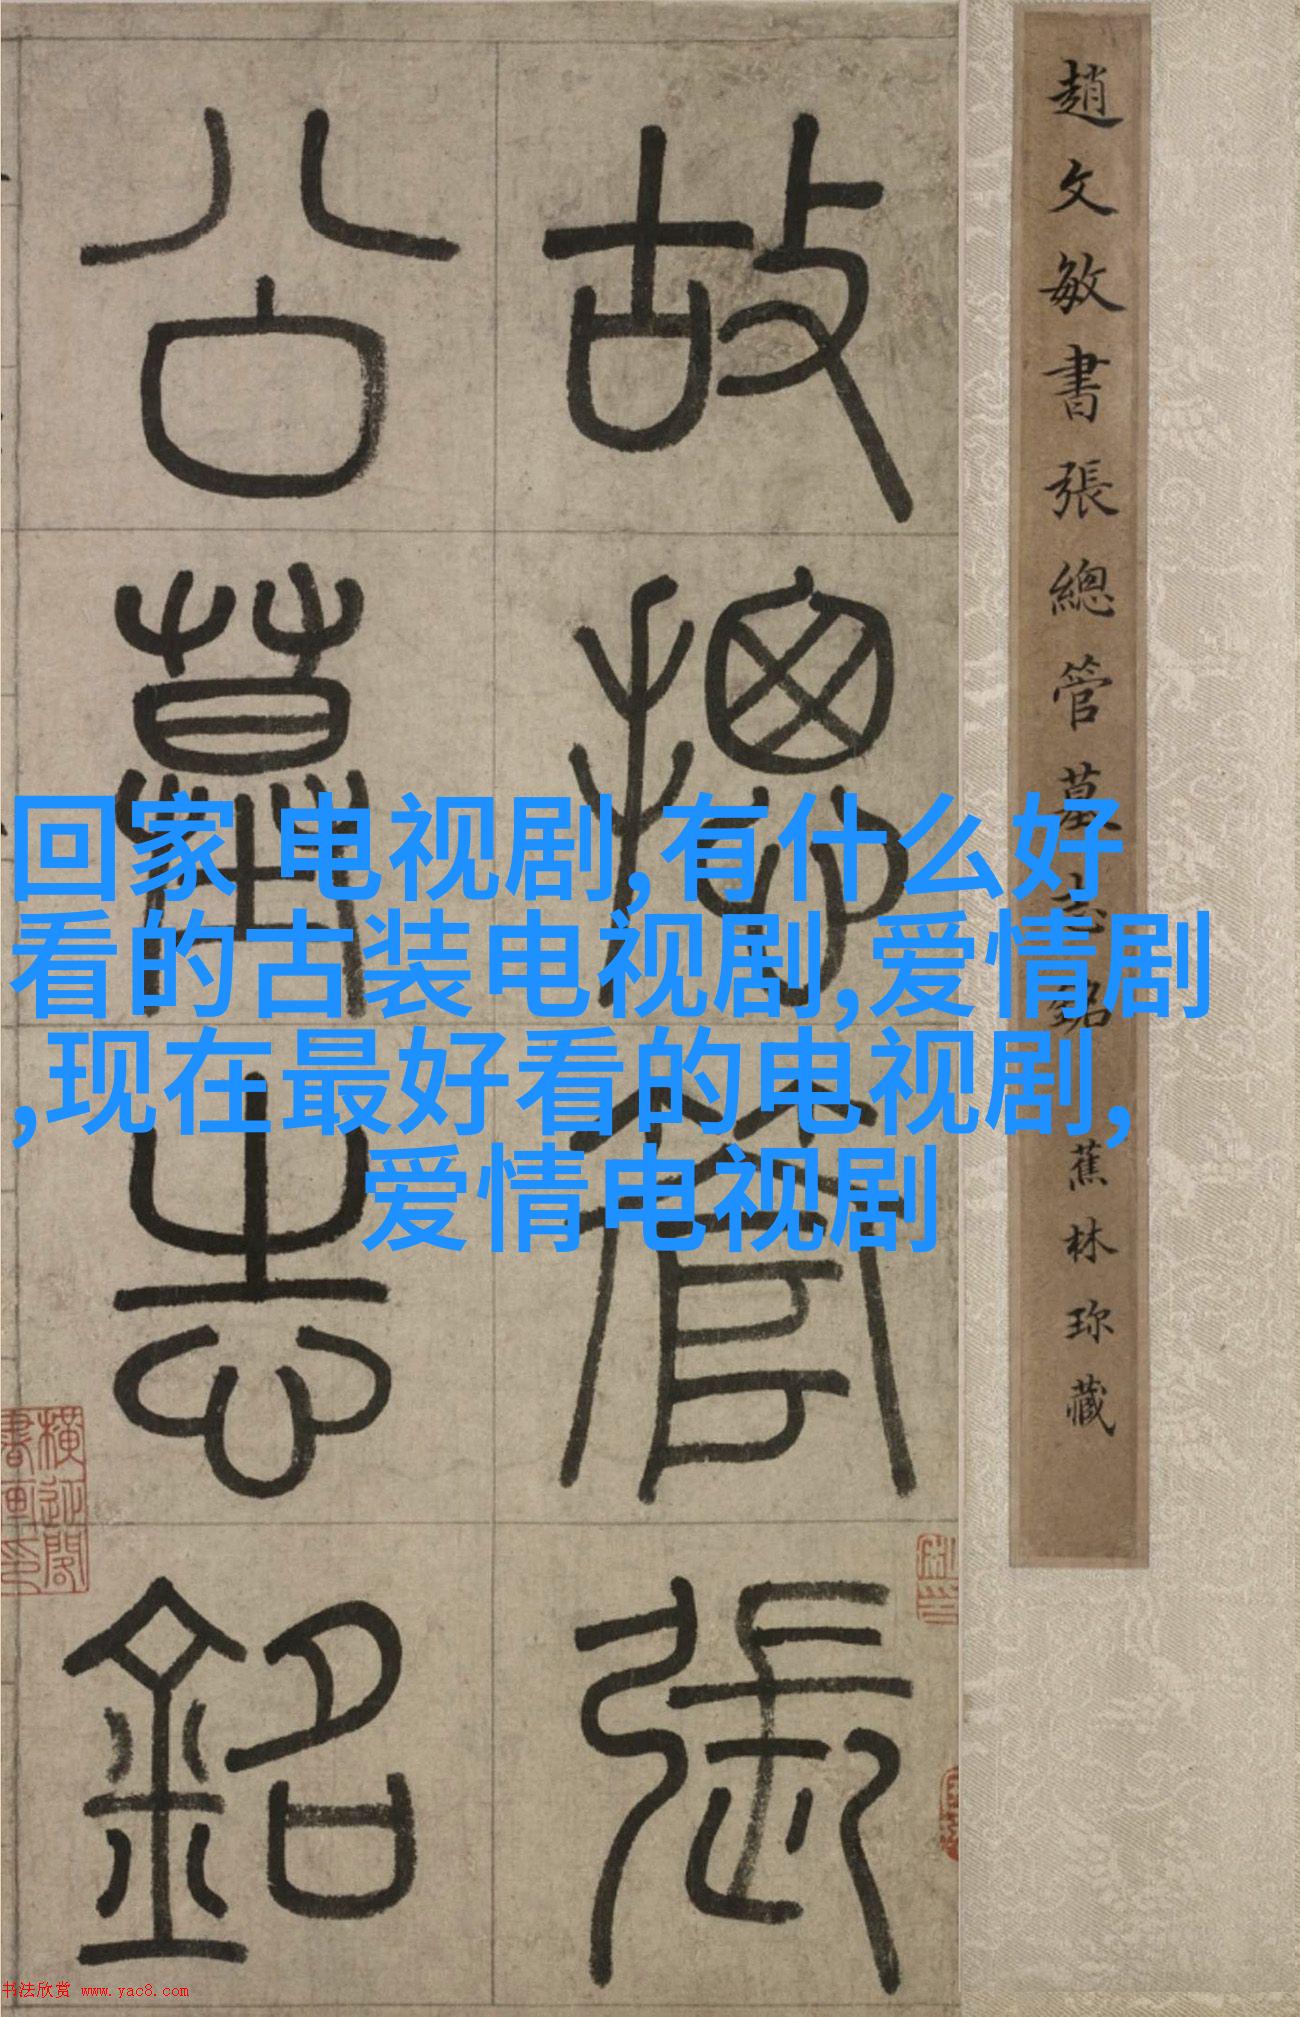 趙文敏書張總管墓志銘
蕉林珎藏
故總管張
公墓志銘
回家 电视剧,有什么好
看的古装电视剧,爱情剧
,现在最好看的电视剧,
爱情电视剧
书法欣赏 www.yac8.com